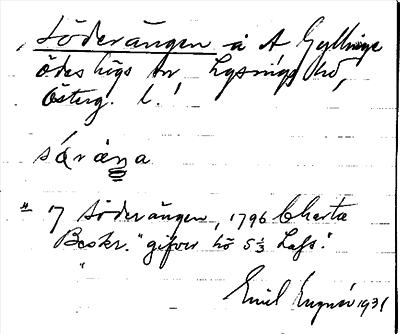 Söderängen å A Gyllinge
Ödeshögs sn Lysings hd,
Österg. l.
sǿræṇa
" 7 Söderängen, 1796 Charta
Beskr. "gifver hö 5 1/3 Lass."
Emil 1931